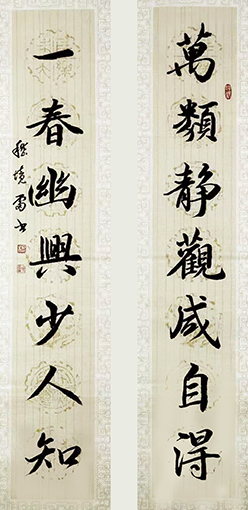 萬類静觀咸自得
一春幽興少人知